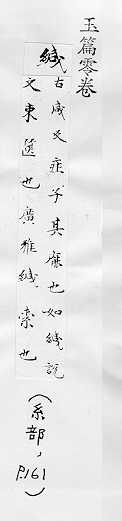 玉篇零卷
緘 古咸反莊子其厭也如緘說
文束篋也廣雅緘索也
(糸部, P.161)